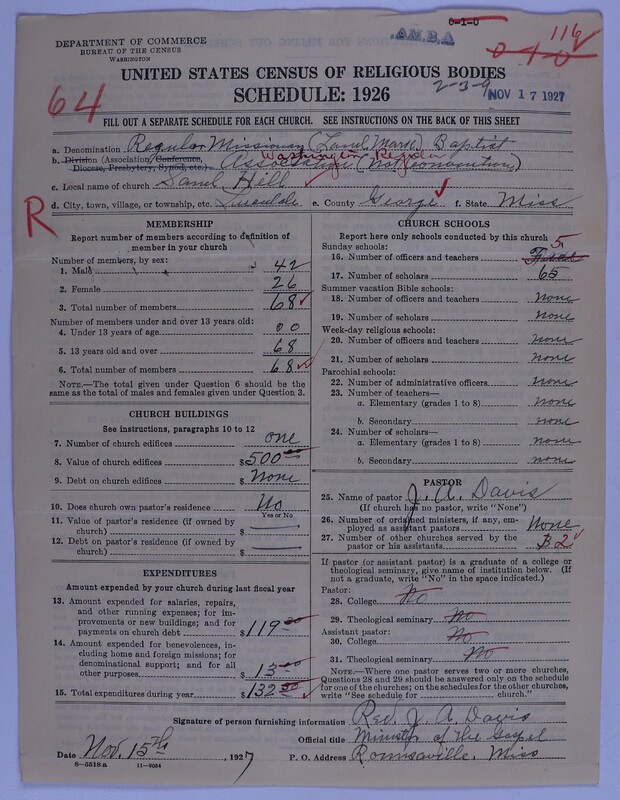 0-1-0
116
A.M.B.A
DEPARTMENT OF COMMERCE
BUREAU OF THE CENSUS
WASHINGTON
0 1 0
UNITED STATES CENSUS OF RELIGIOUS BODIES
SCHEDULE: 1926
2-3-9
NOV 17 1927
64
FILL OUT A SEPARATE SCHEDULE FOR EACH CHURCH. SEE INSTRUCTIONS ON THE BACK OF THIS SHEET
a. Denomination Regular Missionary (Land Mark) Baptist
Washington Regular
b. Division (Association, Conference, Diocese, Presbytery, Synod, etc.) Association (Not Convention)
c. Local name of church Sand Hell
d. City, town, village, or township, etc. Lucedale e. County George f. State Miss
R
MEMBERSHIP
Report number of members according to definition of
member in your church
Number of members, by sex:
1. Male 42
2. Female 26
3. Total number of members 68
Number of members under and over 13 years old:
4. Under 13 years of age 00
5. 13 years old and over 68
6. Total number of members 68
NOTE.—The total given under Question 6 should be the
same as the total of males and females given under Question 3.
CHURCH BUILDINGS
See instructions, paragraphs 10 to 12
7. Number of church edifices one
8. Value of church edifices $500 00
9. Debt on church edifices $None
10. Does church own pastor's residence? No
Yes or No
11. Value of pastor's residence (if owned by
church) $
12. Debt on pastor's residence (if owned by
church) $
EXPENDITURES
Amount expended by your church during last fiscal year
13. Amount expended for salaries, repairs,
and other running expenses; for im-
provements or new buildings; and for
payments on church debt $119
14. Amount expended for benevolences, in-
cluding home and foreign missions; for
denominational support; and for all
other purposes $13
15. Total expenditures during year $132
CHURCH SCHOOLS
Report here only schools conducted by this church
Sunday schools: 5
16. Number of officers and teachers
17. Number of scholars 65
Summer vacation Bible schools:
18. Number of officers and teachers none
19. Number of scholars None
Week-day religious schools:
20. Number of officers and teachers None
21. Number of scholars None
Parochial schools:
22. Number of administrative officers None
23. Number of teachers—
a. Elementary (grades 1 to 8) None
b. Secondary None
24. Number of scholars—
a. Elementary (grades 1 to 8) none
b. Secondary none
PASTOR
25. Name of pastor J. A. Davis
(If church has no pastor, write "None")
26. Number of ordained ministers, if any, em-
ployed as assistant pastors None
27. Number of other churches served by the
pastor or his assistants 2
If pastor (or assistant pastor) is a graduate of a college or
theological seminary, give name of institution below. (If
not a graduate, write "No" in the space indicated.)
Pastor:
28. College No
29. Theological seminary No
Assistant pastor:
30. College No
31. Theological seminary No
NOTE.—Where one pastor serves two or more churches,
Questions 28 and 29 should be answered only on the schedule
for one of the churches; on the schedules for the other churches,
write "See schedule for church."
Signature of person furnishing information Rev. J. A. Davis
Official title Minister of the Gospel
Date Nov. 15th, 1927 P. O. Address Rounsaville, Miss
8—5518 a 11—9034